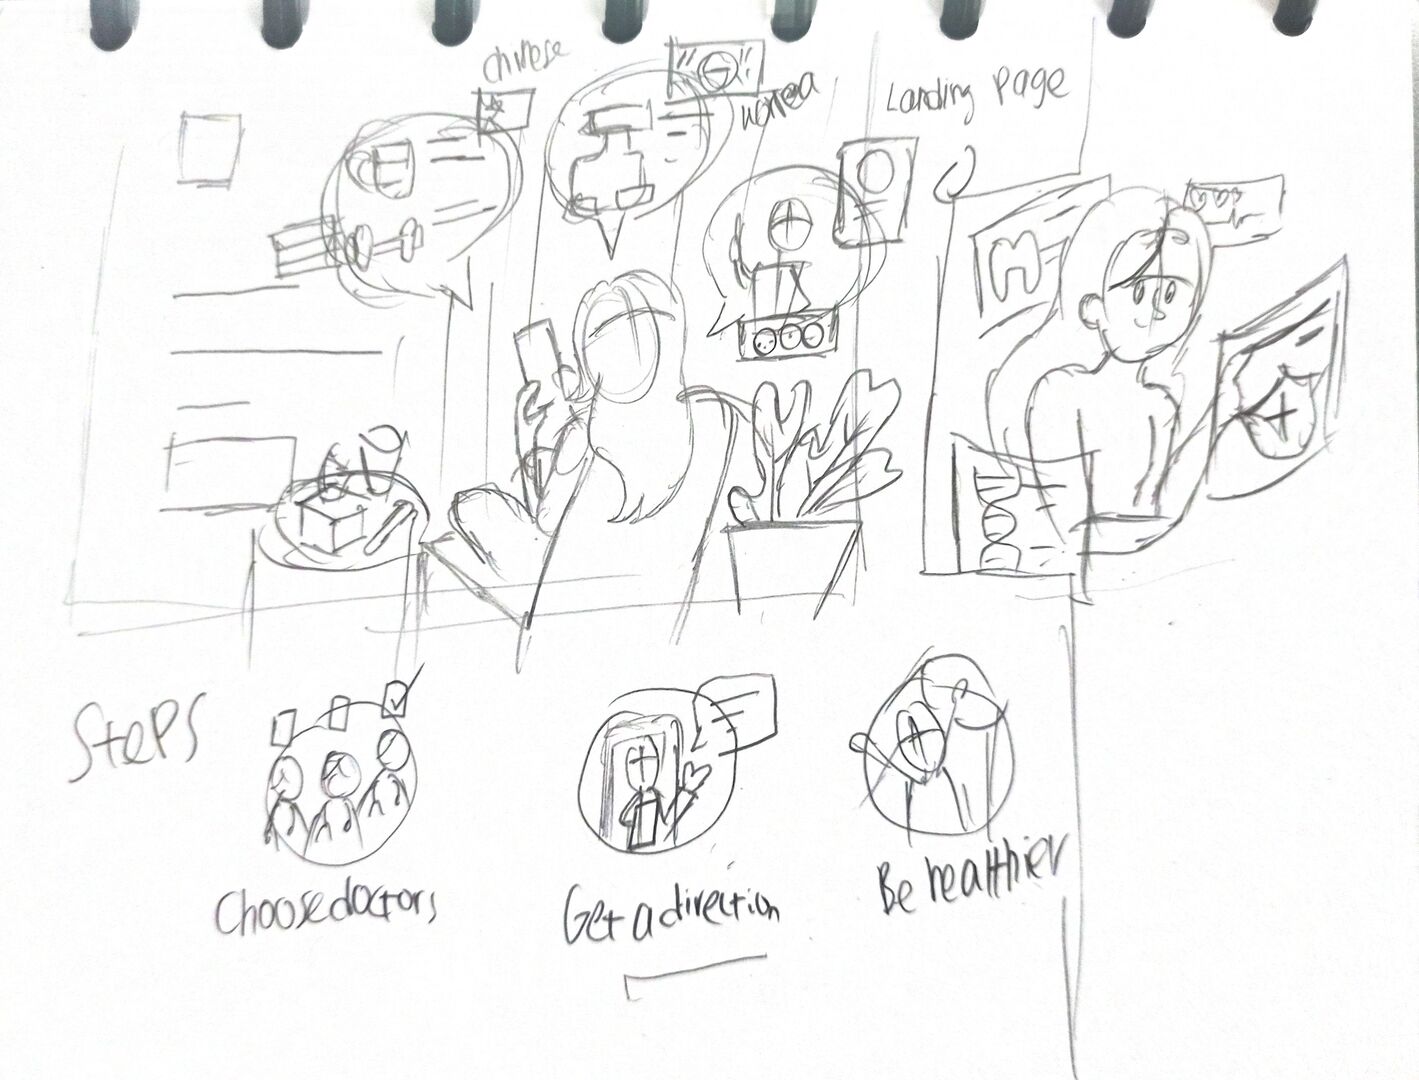 Chinese
Korea
Landing Page
Steps
Choose doctors
Get a direction
Be healthier